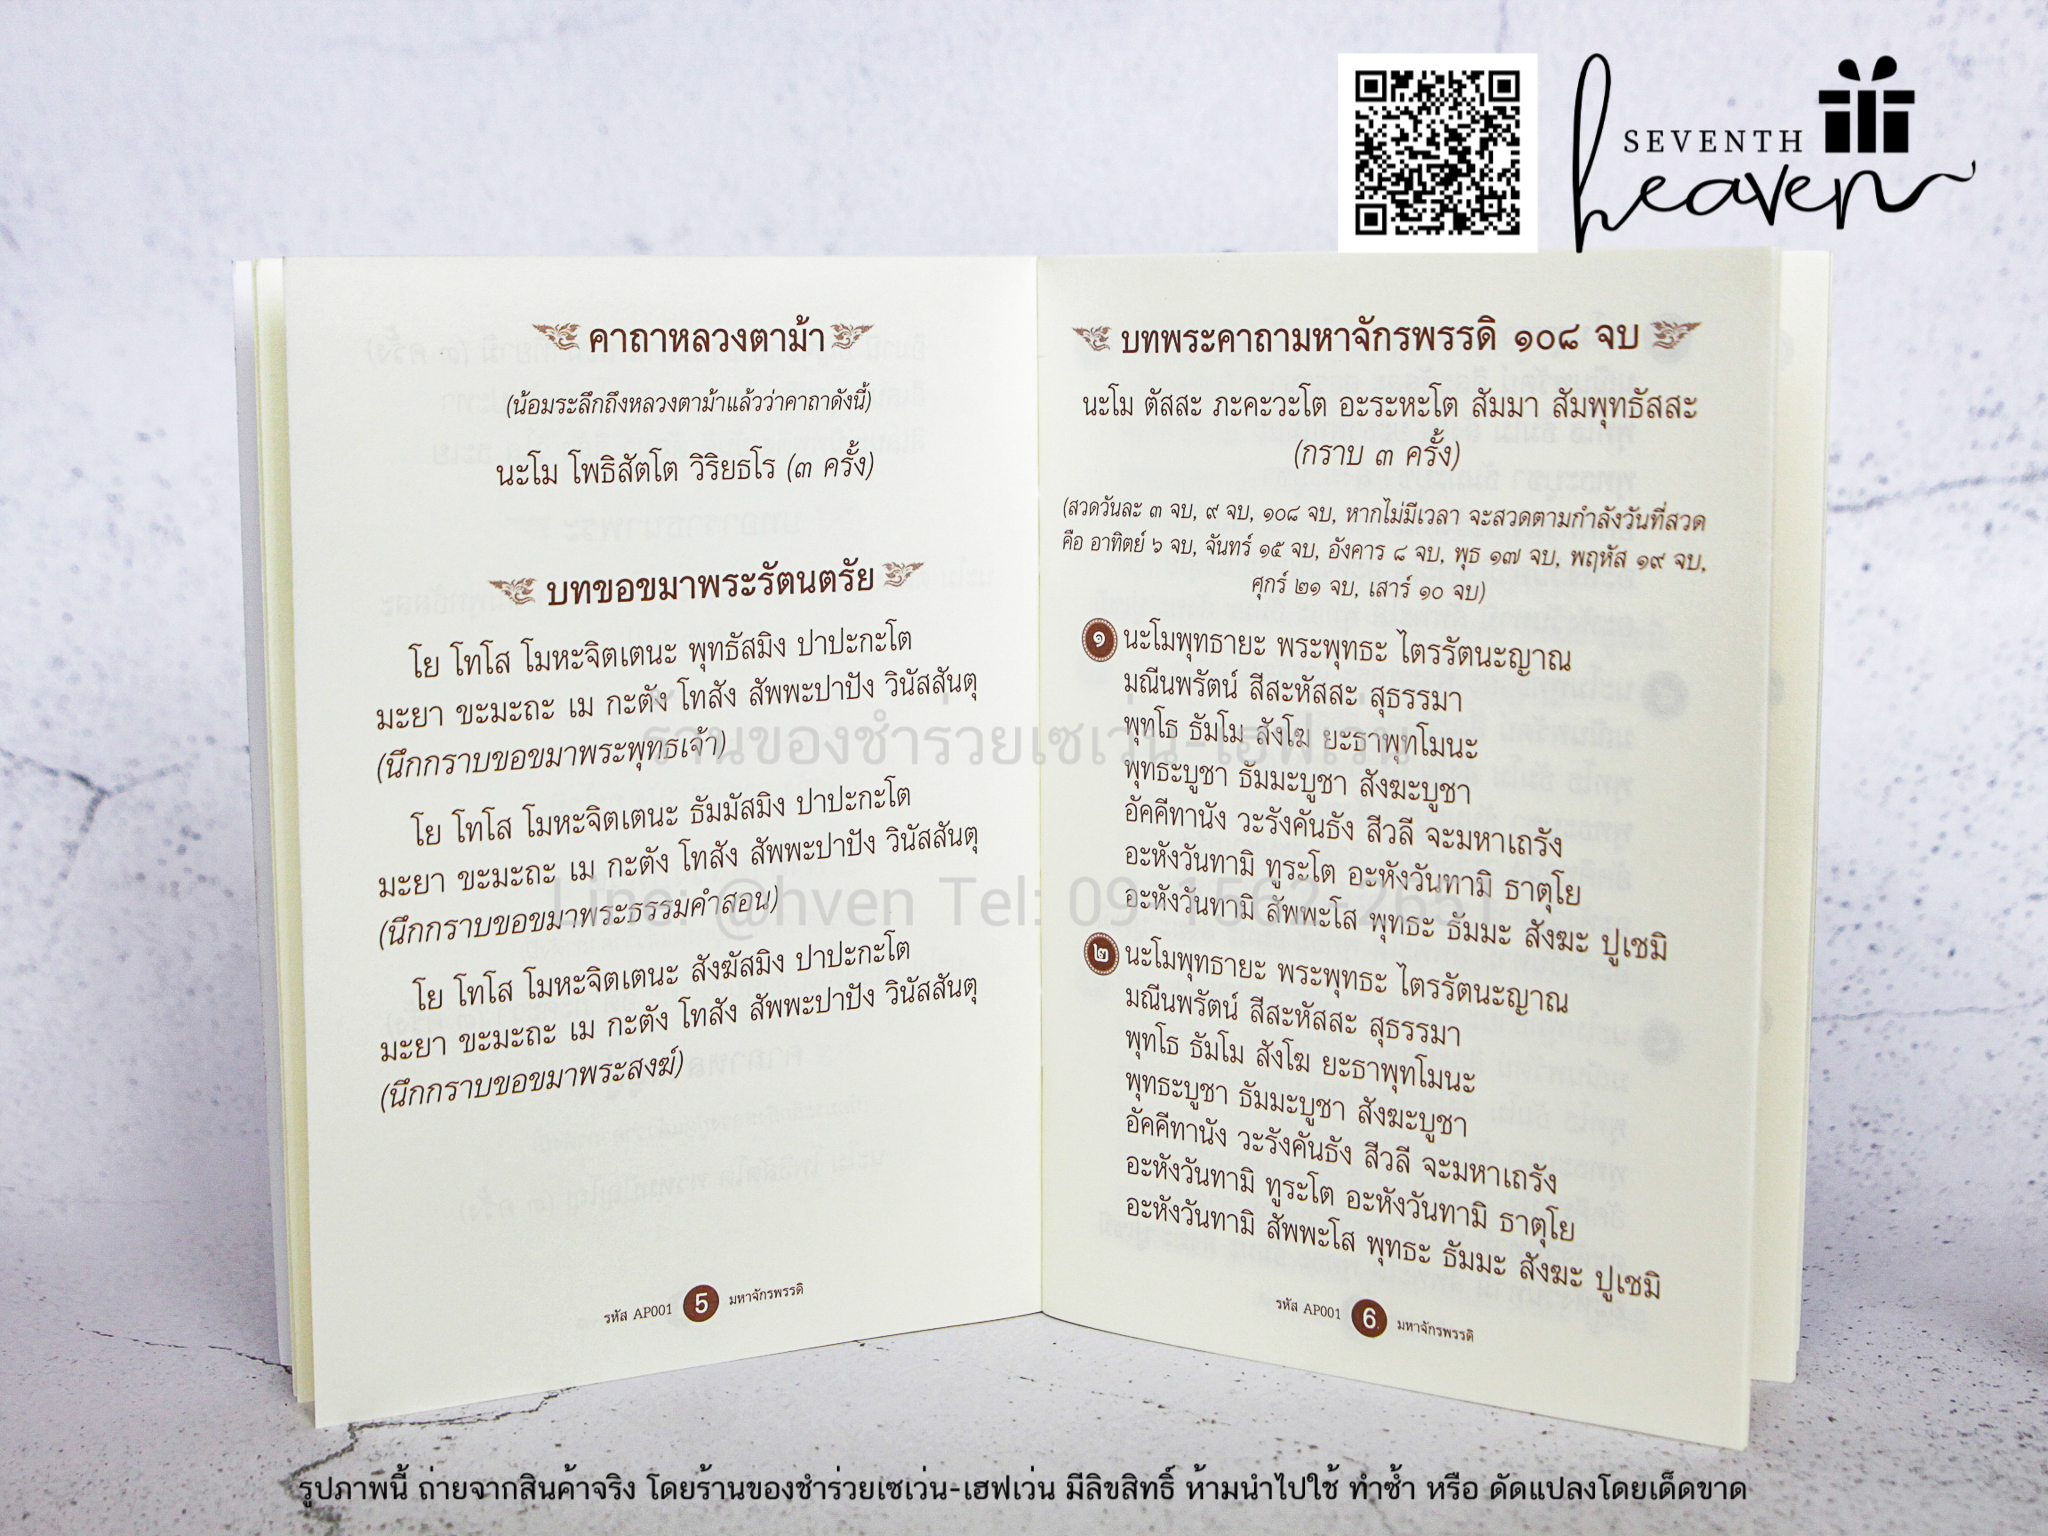 SEVENTH
heaven
คาถาหลวงตาม้า
(น้อมระลึกถึงหลวงตาม้าแล้วว่าคาถาดังนี้)
นะโม โพธิสัตโต วิริยธโร (๓ ครั้ง)
บทขอขมาพระรัตนตรัย
โย โทโส โมหะจิตเตนะ พุทธัสมิง ปาปะกะโต
มะยา ขะมะถะ เม กะตัง โทสัง สัพพะปาปัง วินัสสันตุ
(นึกกราบขอขมาพระพุทธเจ้า)
โย โทโส โมหะจิตเตนะ ธัมมัสมิง ปาปะกะโต
มะยา ขะมะถะ เม กะตัง โทสัง สัพพะปาปัง วินัสสันตุ
(นึกกราบขอขมาพระธรรมคำสอน)
โย โทโส โมหะจิตเตนะ สังฆัสมิง ปาปะกะโต
มะยา ขะมะถะ เม กะตัง โทสัง สัพพะปาปัง วินัสสันตุ
(นึกกราบขอขมาพระสงฆ์)
รหัส AP001 5 มหาจักรพรรดิ
บทพระคาถามหาจักรพรรดิ ๑๐๘ จบ
นะโม ตัสสะ ภะคะวะโต อะระหะโต สัมมา สัมพุทธัสสะ
(กราบ ๓ ครั้ง)
(สวดวันละ ๓ จบ, ๙ จบ, ๑๐๘ จบ, หากไม่มีเวลา จะสวดตามกำลังวันที่สวด
คือ อาทิตย์ ๖ จบ, จันทร์ ๑๕ จบ, อังคาร ๘ จบ, พุธ ๑๗ จบ, พฤหัส ๑๙ จบ,
ศุกร์ ๒๑ จบ, เสาร์ ๑๐ จบ)
๑ นะโมพุทธายะ พระพุทธะ ไตรรัตนะญาณ
มณีนพรัตน์ สีสะหัสสะ สุธรรมา
พุทโธ ธัมโม สังโฆ ยะธาพุทโมนะ
พุทธะบูชา ธัมมะบูชา สังฆะบูชา
อัคคีทานัง วะรังคันธัง สีวลี จะมหาเถรัง
อะหังวันทามิ ทูระโต อะหังวันทามิ ธาตุโย
อะหังวันทามิ สัพพะโส พุทธะ ธัมมะ สังฆะ ปูเชมิ
๒ นะโมพุทธายะ พระพุทธะ ไตรรัตนะญาณ
มณีนพรัตน์ สีสะหัสสะ สุธรรมา
พุทโธ ธัมโม สังโฆ ยะธาพุทโมนะ
พุทธะบูชา ธัมมะบูชา สังฆะบูชา
อัคคีทานัง วะรังคันธัง สีวลี จะมหาเถรัง
อะหังวันทามิ ทูระโต อะหังวันทามิ ธาตุโย
อะหังวันทามิ สัพพะโส พุทธะ ธัมมะ สังฆะ ปูเชมิ
รหัส AP001 6 มหาจักรพรรดิ
ร้านของชำร่วยเซเว่น-เฮฟเว่น
Line: @hven Tel:
รูปภาพนี้ ถ่ายจากสินค้าจริง โดยร้านของชำร่วยเซเว่น-เฮฟเว่น มีลิขสิทธิ์ ห้ามนำไปใช้ ทำซ้ำ หรือ ดัดแปลงโดยเด็ดขาด